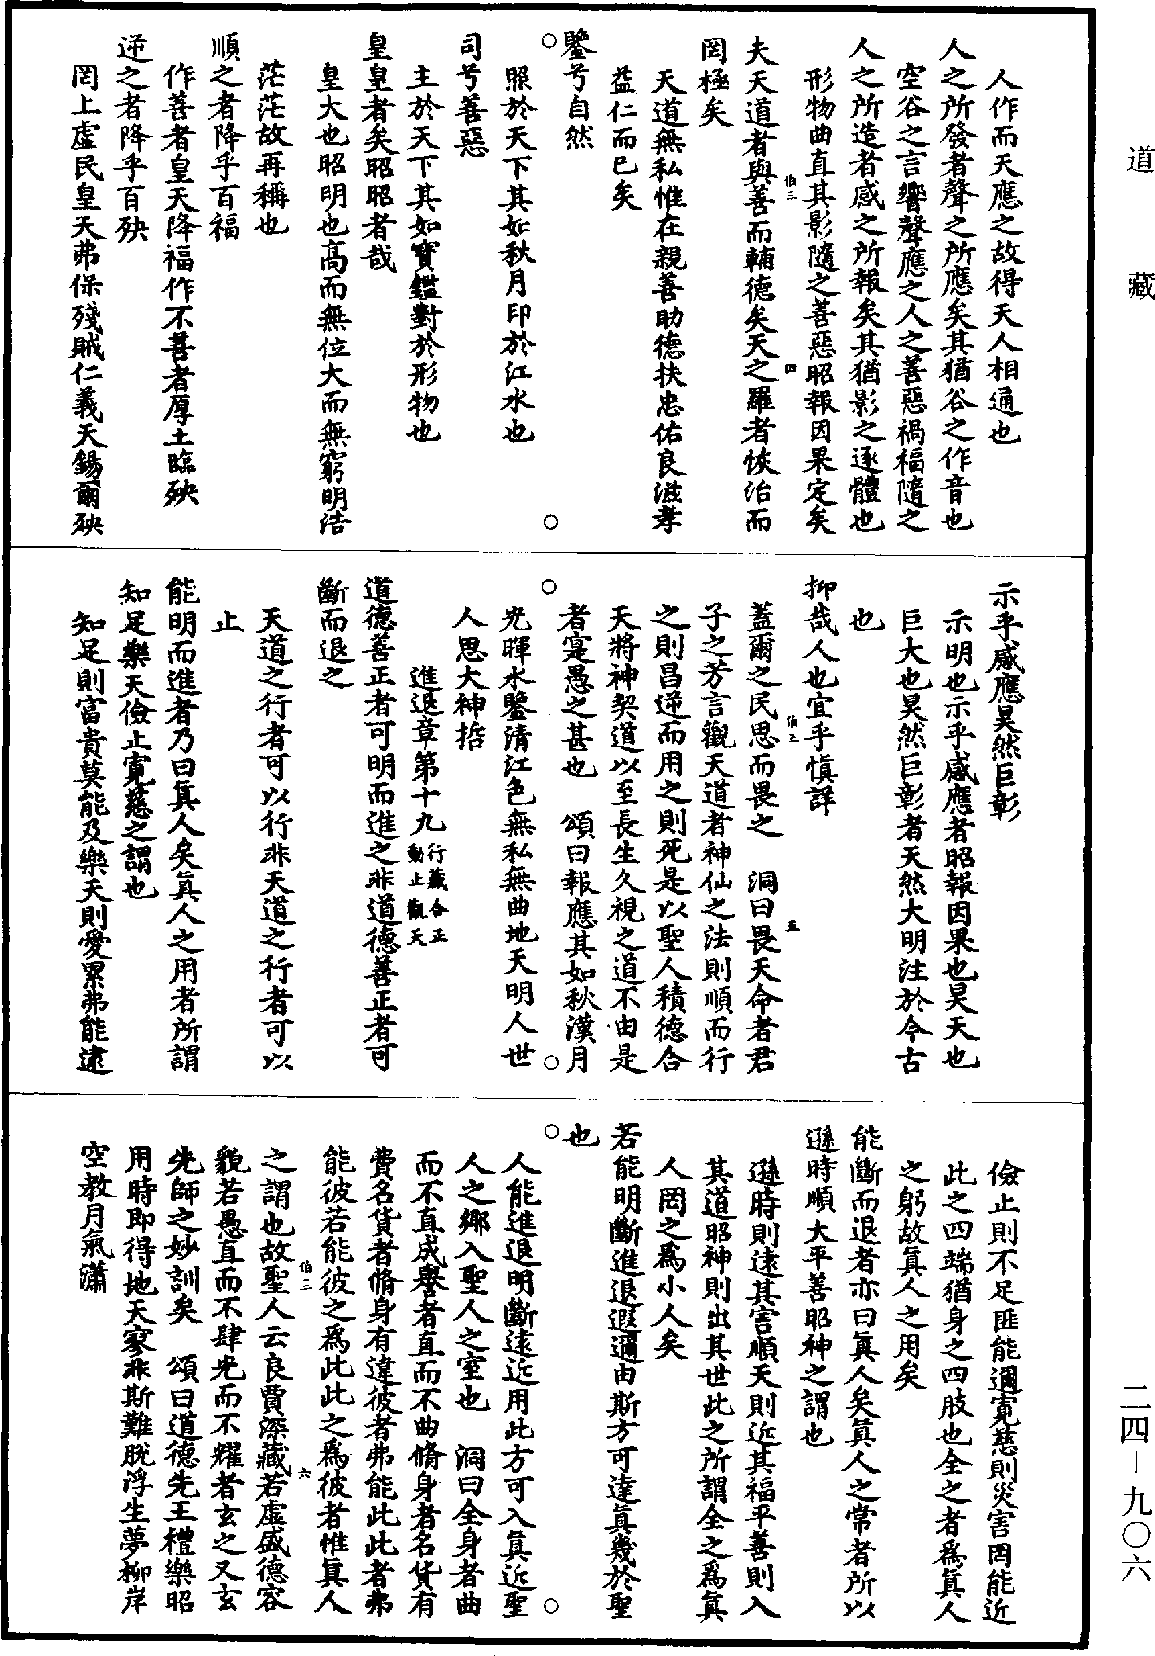 道藏
人作而天應之故得天人相通也
人之所發者聲之所應矣其猶谷之作音也
空谷之言響聲應之人之善惡禍福隨之
人之所造者感之所報矣其猶影之逐體也
形物曲直其影隨之善惡昭報因果定矣
夫天道者與善而輔德矣天之羅者恢治而
罔極矣
天道無私惟在親善助德扶忠佑良滋孝
益仁而已矣
鑒兮自然
照於天下其如秋月印於江水也
司兮善惡
主於天下其如寶鑑對於形物也
皇皇者矣昭昭者哉
皇大也昭明也高而無位大而無窮明浩
茫茫故再稱也
順之者降乎百福
作善者皇天降福作不善者厚土臨殃
逆之者降乎百殃
罔上虛民皇天弗保殘賊仁義天錫爾殃
示乎感應昊然巨彰
示明也示乎感應者昭報因果也昊天也
巨大也昊然巨彰者天然大明注於今古
也
抑哉人也宜乎慎詳
蓋爾之民思而畏之 洞曰畏天命者君
子之芳言觀天道者神仙之法則順而行
之則昌逆而用之則死是以聖人積德合
天將神契道以至長生久視之道不由是
者寔愚之甚也 頌曰報應其如秋漢月
光暉水鑒清江色無私無曲地天明人世
人思大神悊
進退章第十九行藏合正動止觀天
道德善正者可明而進之非道德善正者可
斷而退之
天道之行者可以行非天道之行者可以
止
能明而進者乃曰真人矣真人之用者所謂
知足樂天儉止寬慈之謂也
知足則富貴莫能及樂天則愛累弗能逮
儉止則不足匪能邇寬慈則災害罔能近
此之四端猶身之四肢也全之者為真人
之躬故真人之用矣
能斷而退者亦曰真人矣真人之常者所以
遜時順大平善昭神之謂也
遜時則遠其害順天則近其福平善則入
其道昭神則出其世此之所謂全之為真
人罔之為小人矣
若能明斷進退遐邇由斯方可達真幾於聖
也
人能進退明斷遠近用此方可入真近聖
人之鄉入聖人之室也 洞曰全身者曲
而不直成譽者直而不曲脩身者名貨有
費名貨者脩身有違彼者弗能此此者弗
能彼若能彼之為此此之為彼者惟真人
之謂也故聖人云良賈深藏若虛盛德容
貌若愚直而不肆光而不耀者玄之又玄
先師之妙訓矣 頌曰道德先王禮樂昭
用時即得地天寥非斯難脫浮生夢柳岸
空教月氣瀟
二四—九〇六